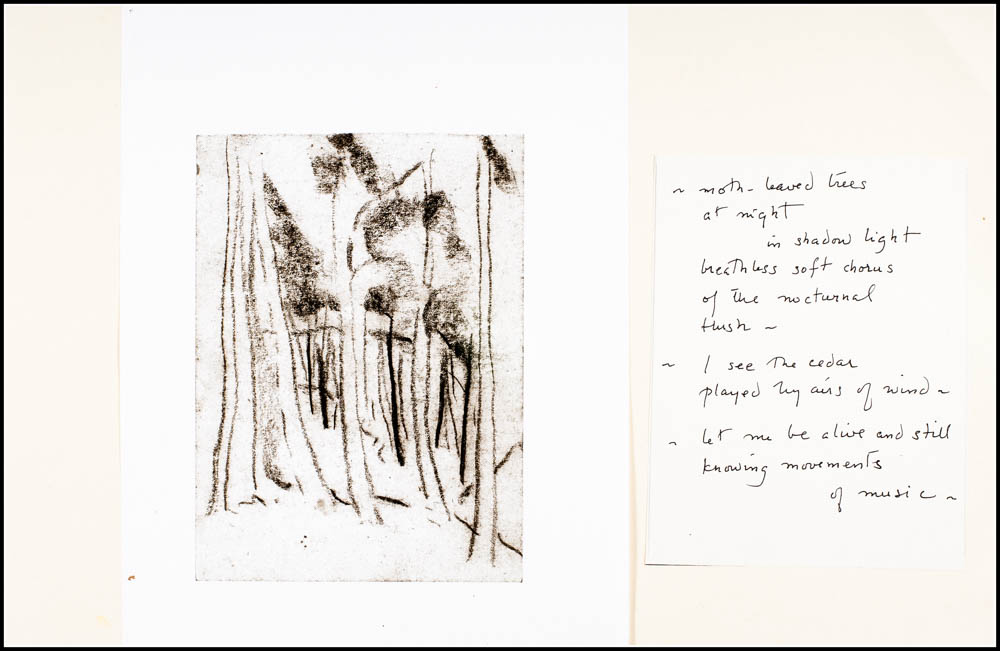 ~ moth-leaved trees
at night
in shadow light
breathless soft chorus
of the nocturnal
hush ~
~ I see the cedar
played by airs of wind ~
~ let me be alive and still
knowing movements
of music ~